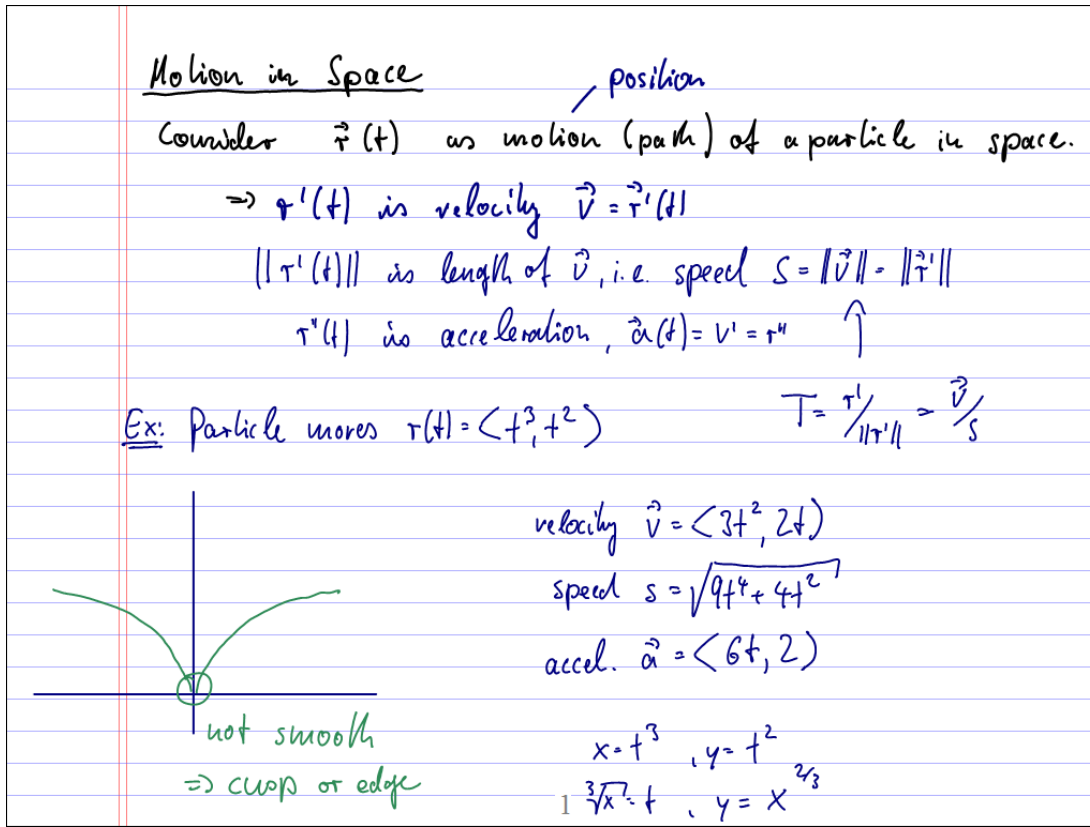 Motion in Space
position
Consider r⃗(t) as motion (path) of a particle in space.
⇒ r'(t) is velocity v⃗ = r⃗'(t)
||r'(t)|| is length of v⃗, i.e. speed S = ||v⃗|| = ||r⃗'||
r"(t) is acceleration, a⃗(t) = v' = r" ↑
T = r'/||r'|| = v⃗/s
Ex: Particle moves r(t) = <t³, t²>
velocity v⃗ = <3t², 2t>
speed s = √(9t⁴ + 4t²)
accel. a⃗ = <6t, 2>
not smooth
⇒ cusp or edge
x = t³, y = t²
∛x = t, y = x^(2/3)
1